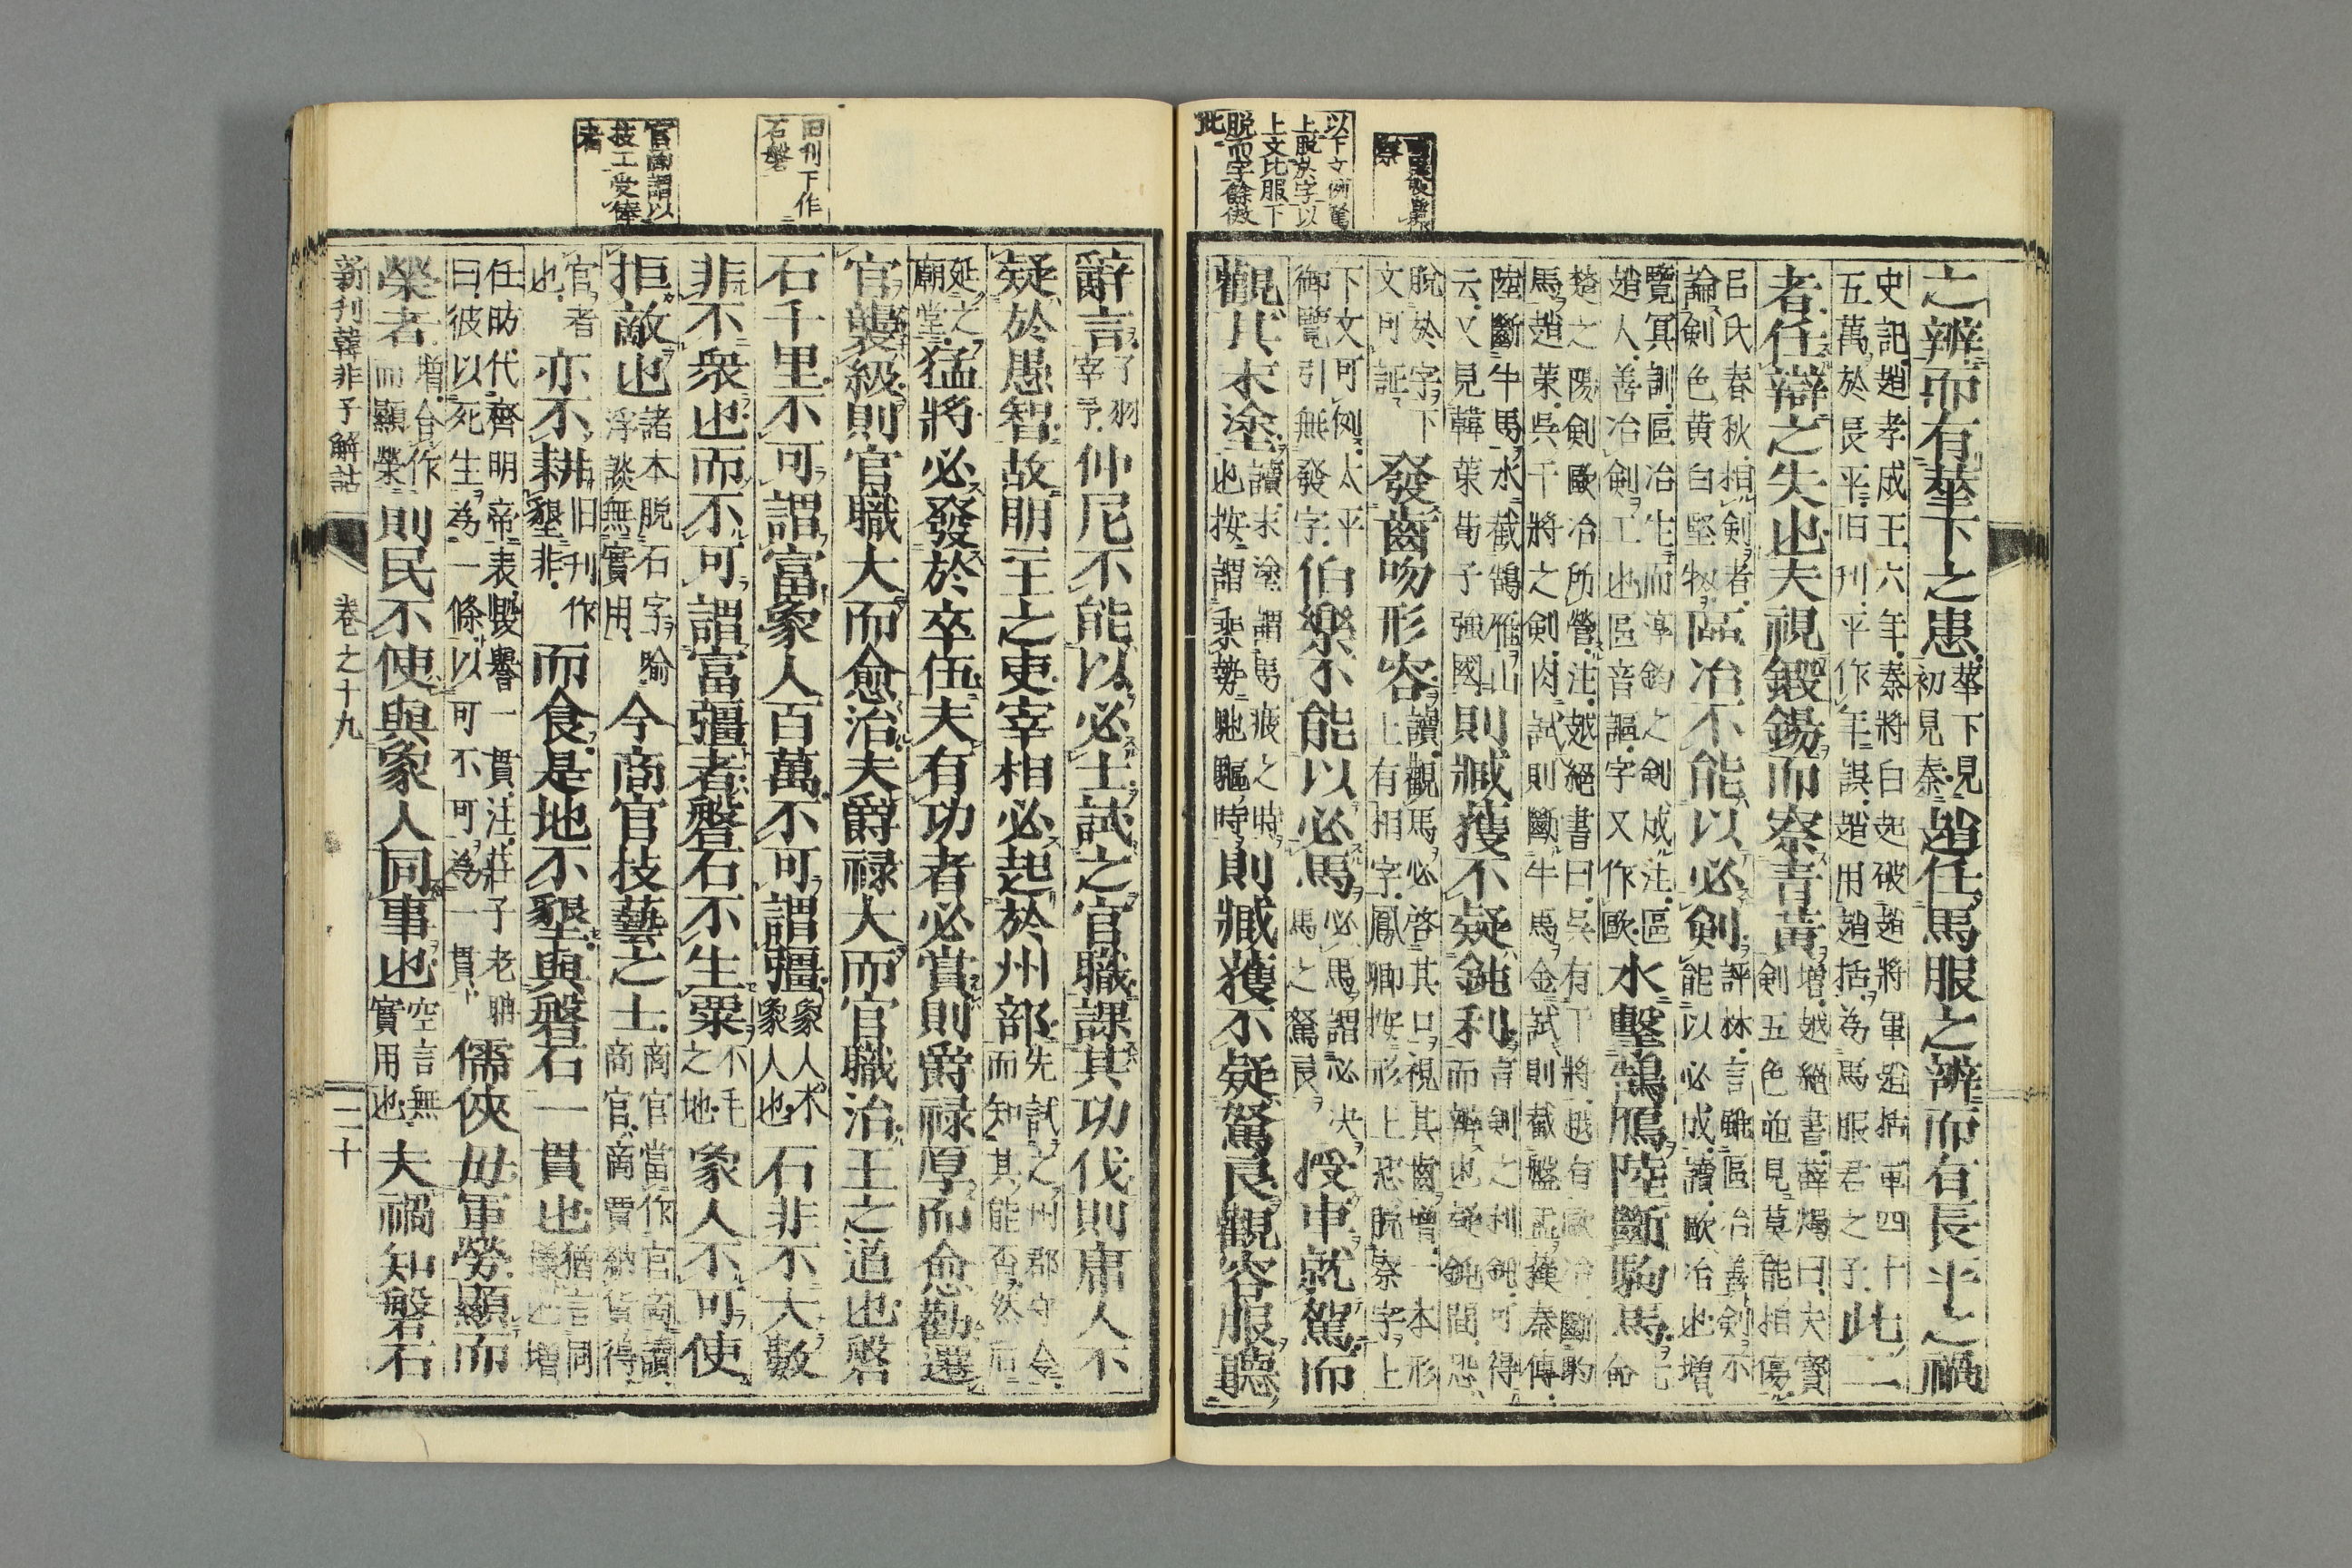 以下文例駑
上脫於字以
上文比服下
脫而字餘倣
此
之辨而有華下之患 華下見 初見秦 趙任馬服之辨而有長平之禍
史記趙孝成王六年秦將白起破趙將軍趙括軍四十
五萬於長平旧刊平作年誤趙用趙括為馬服君之子 此二
者任辯之失也夫視鍛錫而察青黃 增越絕書薛燭曰夫寶 劍五色並見莫能相傷
呂氏春秋相劍者 論劍色黃白堅牣 區冶不能以必劍 評林言雖區冶善劍不 能以必成讀歐冶也增
覽冥訓區冶生而淳鈞之劍成注區 趙人善冶劍工也區音謳字又作歐 水擊鵠鴈陸斷駒馬
楚之陽劍歐冶所營注越絕書曰吳有干將越有歐冶斷駒
馬趙策吳干將之劍肉試則斷牛馬金試則截盤盂漢秦傳
陸斷牛馬水截鵠雁山 云又見韓策荀子強國 則臧獲不疑鈍利 言劍之利鈍可得 而辨也疑鈍間恐
脫於字下 文可証 發齒吻形容 讀觀馬必啓其口視其齒增一本形 上有相字鳳卿按形上恐脫察字上
下文可例太平 御覽引無發字 伯樂不能以必馬 必馬謂必決 馬之駑良 授車就駕而
觀其末塗 讀末塗謂馬疲之時 也按謂乘勢馳驅時 則臧獲不疑駑良觀容服聽
旧刊下作
石磐
官商謂以
技工受俸
者
辭言 子羽 宰予 仲尼不能以必士試之官職課其功伐則庸人不
疑於愚智故明主之吏宰相必起於州部 先試之州郡守令 而知其能否然后
延之 廟堂 猛將必發於卒伍夫有功者必賞則爵祿厚而愈勸遷
官襲級則官職大而愈治夫爵祿大而官職治王之道也磐
石千里不可謂富象人百萬不可謂彊 象人木 象人也 石非不大數
非不衆也而不可謂富彊者磐石不生粟 不毛 之地 象人不可使
拒敵也 諸本脫石字喻 浮談無實用 今商官技藝之士 商官當作官商讀 商官商賈納貨得
官者 也 亦不耕 旧刊作 墾非 而食是地不墾與磐石一貫也 猶言同 條也增
任昉代齊明帝表毀譽一貫注莊子老聃
曰彼以死生為一條以可不可為一貫 儒俠毋軍勞顯而
榮者 增合作 而顯榮 則民不使與象人同事也 空言無 實用也 夫禍知磐石
新刊韓非子解詁 卷之十九 二十